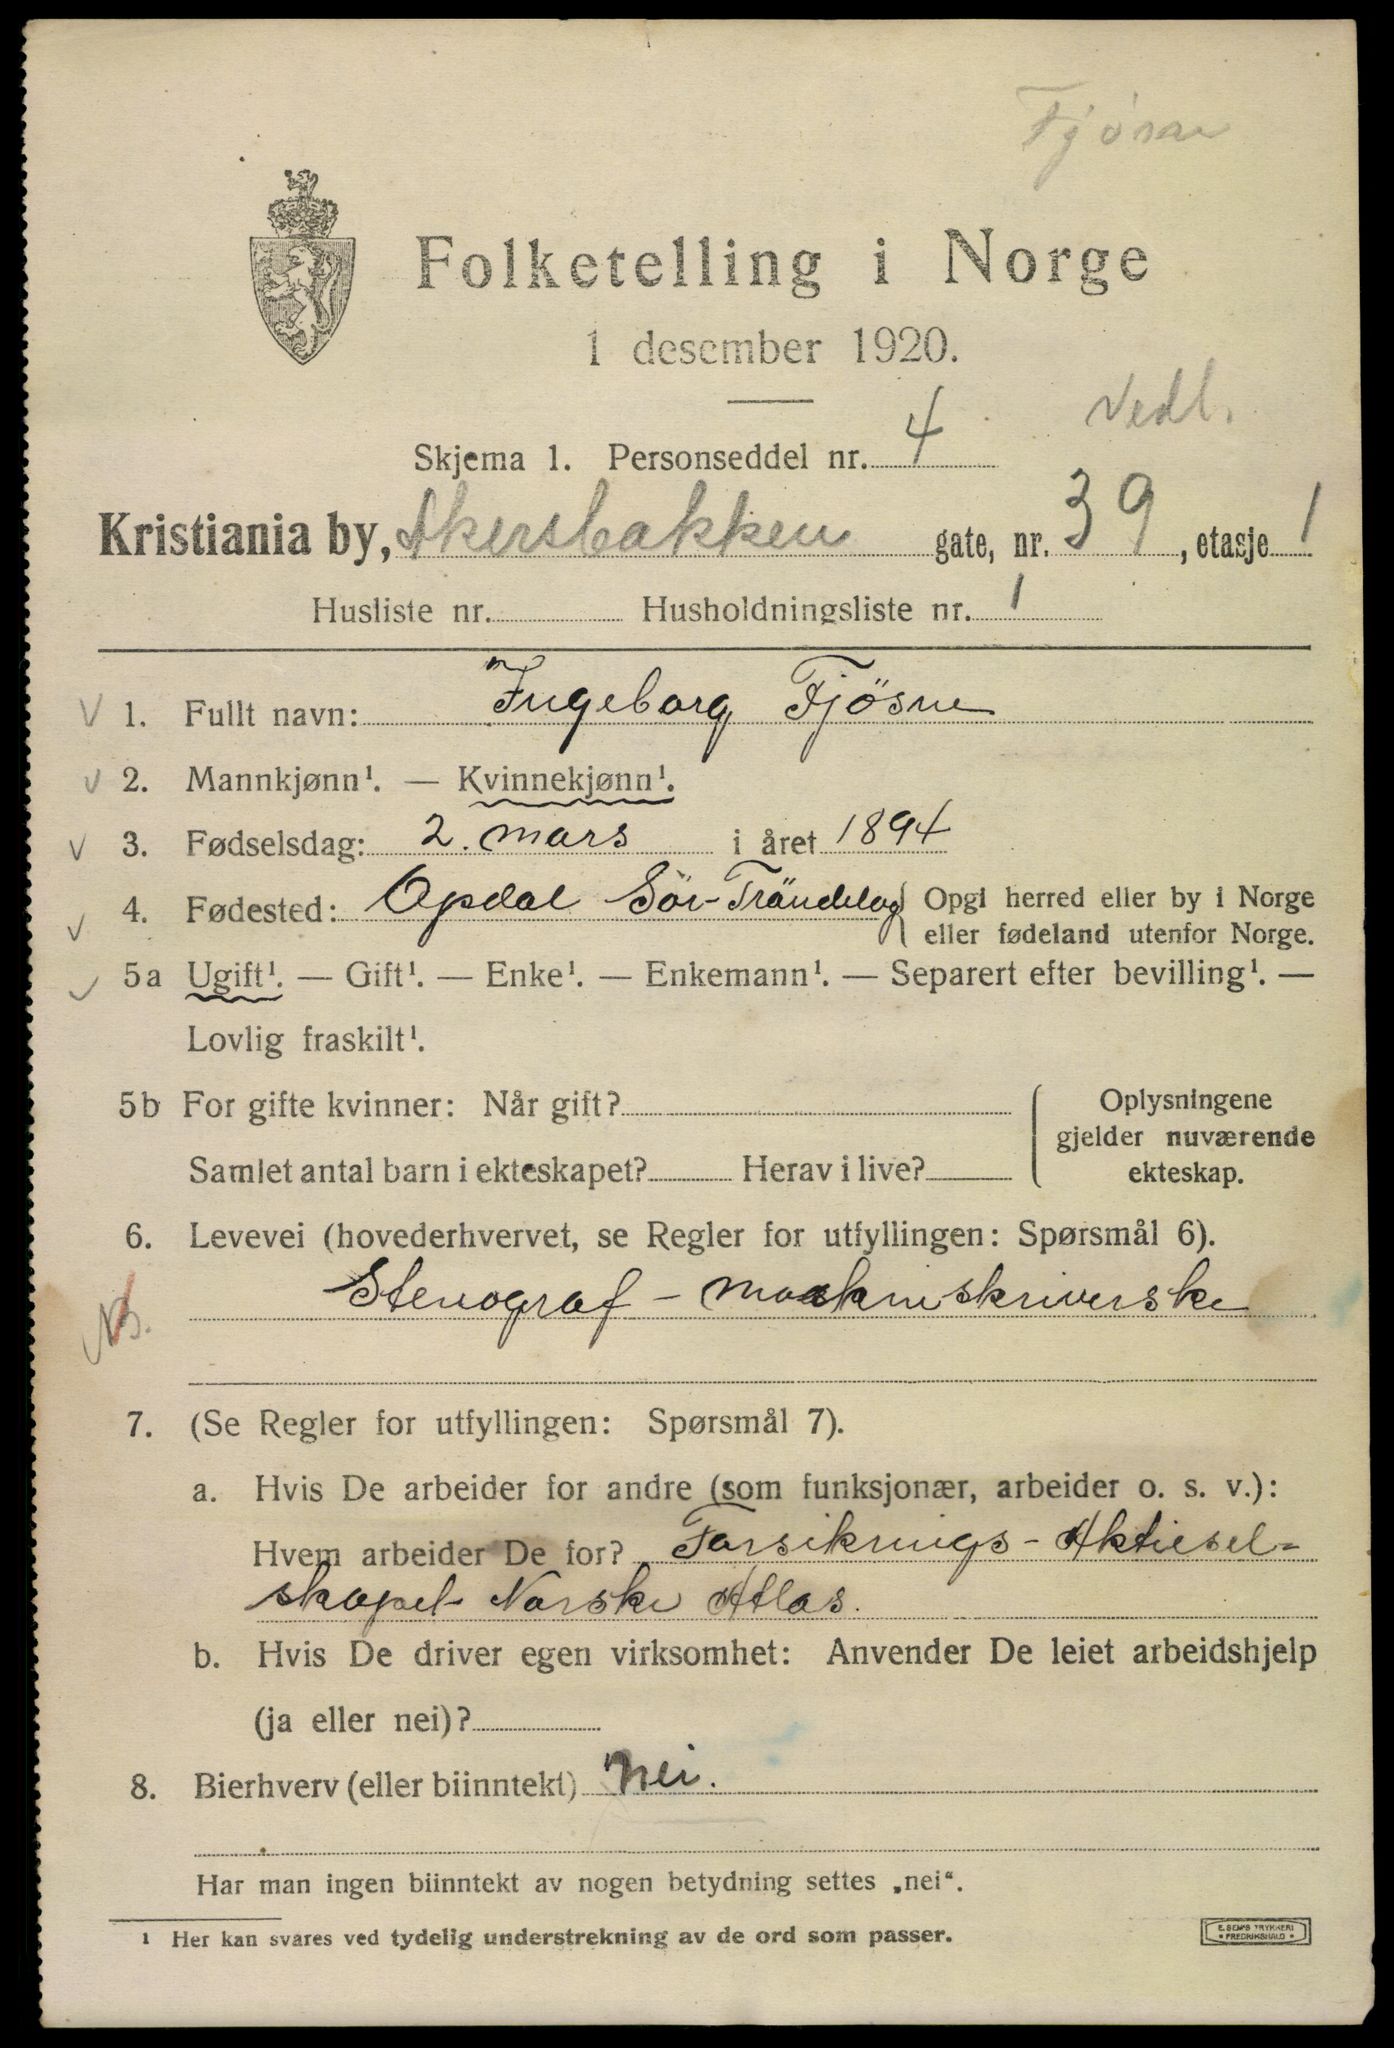 Fjösne
Folketelling i Norge
1 desember 1920.
Vedl.
Skjema 1. Personseddel nr. 4
Kristiania by, Akersbakken gate, nr. 39, etasje 1
Husliste nr. Husholdningsliste nr. 1
1. Fullt navn: Ingeborg Fjösne
2. Mannkjønn¹. — Kvinnekjønn¹.
3. Fødselsdag: 2. mars i året 1894
4. Fødested: Opdal Sör-Tröndelag Opgi herred eller by i Norge
eller fødeland utenfor Norge.
5a Ugift¹. — Gift¹. — Enke¹. — Enkemann¹. — Separert efter bevilling¹. —
Lovlig fraskilt¹.
5b For gifte kvinner: Når gift? Oplysningene
gjelder nuværende
Samlet antal barn i ekteskapet? Herav i live? ekteskap.
6. Levevei (hovederhvervet, se Regler for utfyllingen: Spørsmål 6).
NB. Stenograf - maskinskriverske
7. (Se Regler for utfyllingen: Spørsmål 7).
a. Hvis De arbeider for andre (som funksjonær, arbeider o. s. v.):
Hvem arbeider De for? Forsikrings-Aktiesel-
skapet Norske Atlas.
b. Hvis De driver egen virksomhet: Anvender De leiet arbeidshjelp
(ja eller nei)?
8. Bierhverv (eller biinntekt) Nei.
Har man ingen biinntekt av nogen betydning settes „nei“.
¹ Her kan svares ved tydelig understrekning av de ord som passer.
E. SEM'S TRYKKERI
• FREDRIKSHALD •